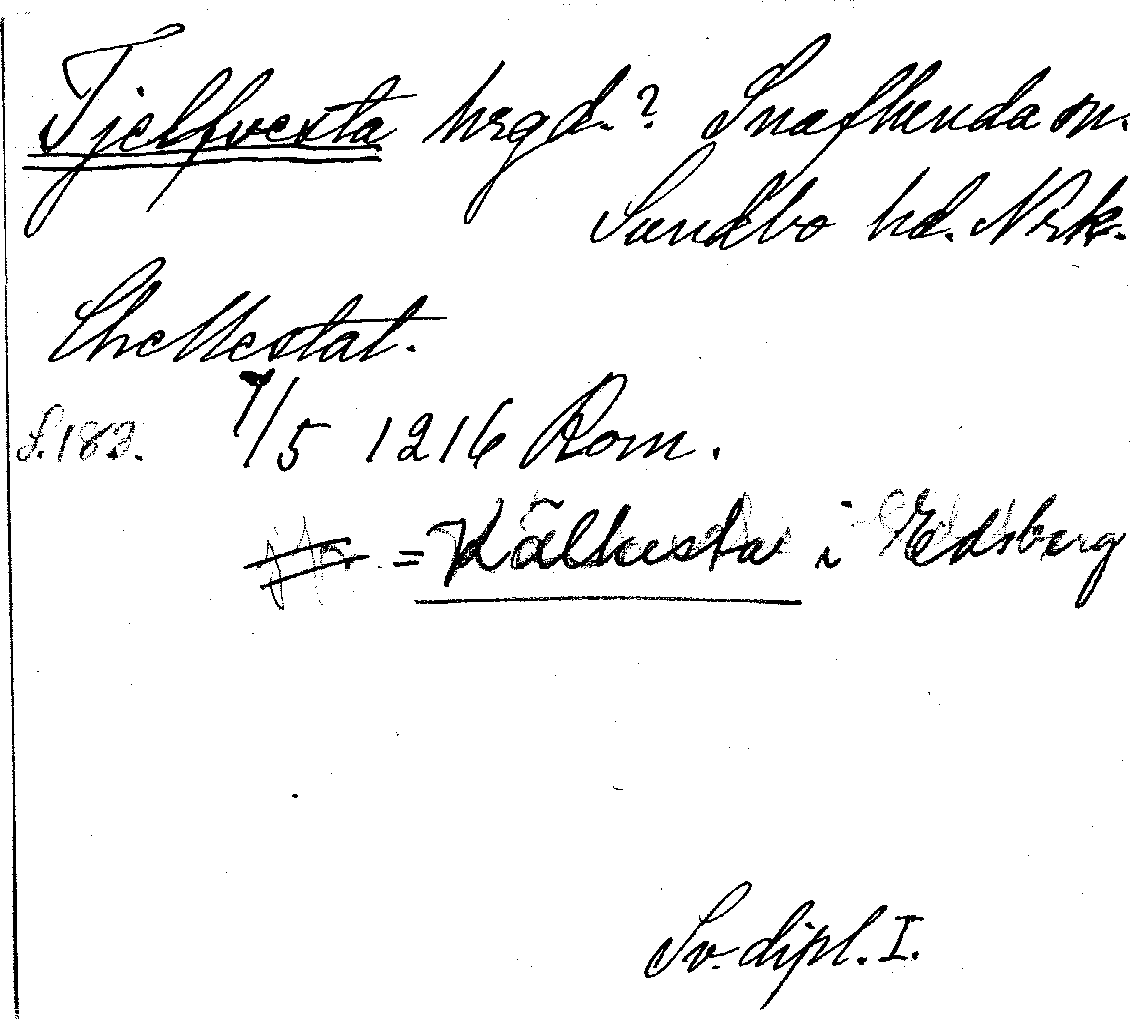 Tjelfvesta hrgd.? Snaflunda sn.
Sundbo hd. Nrk.
Thellestat.
S. 182. 7/5 1216 Rom.
= Kälkesta i Edsberg
Sv. dipl. I.